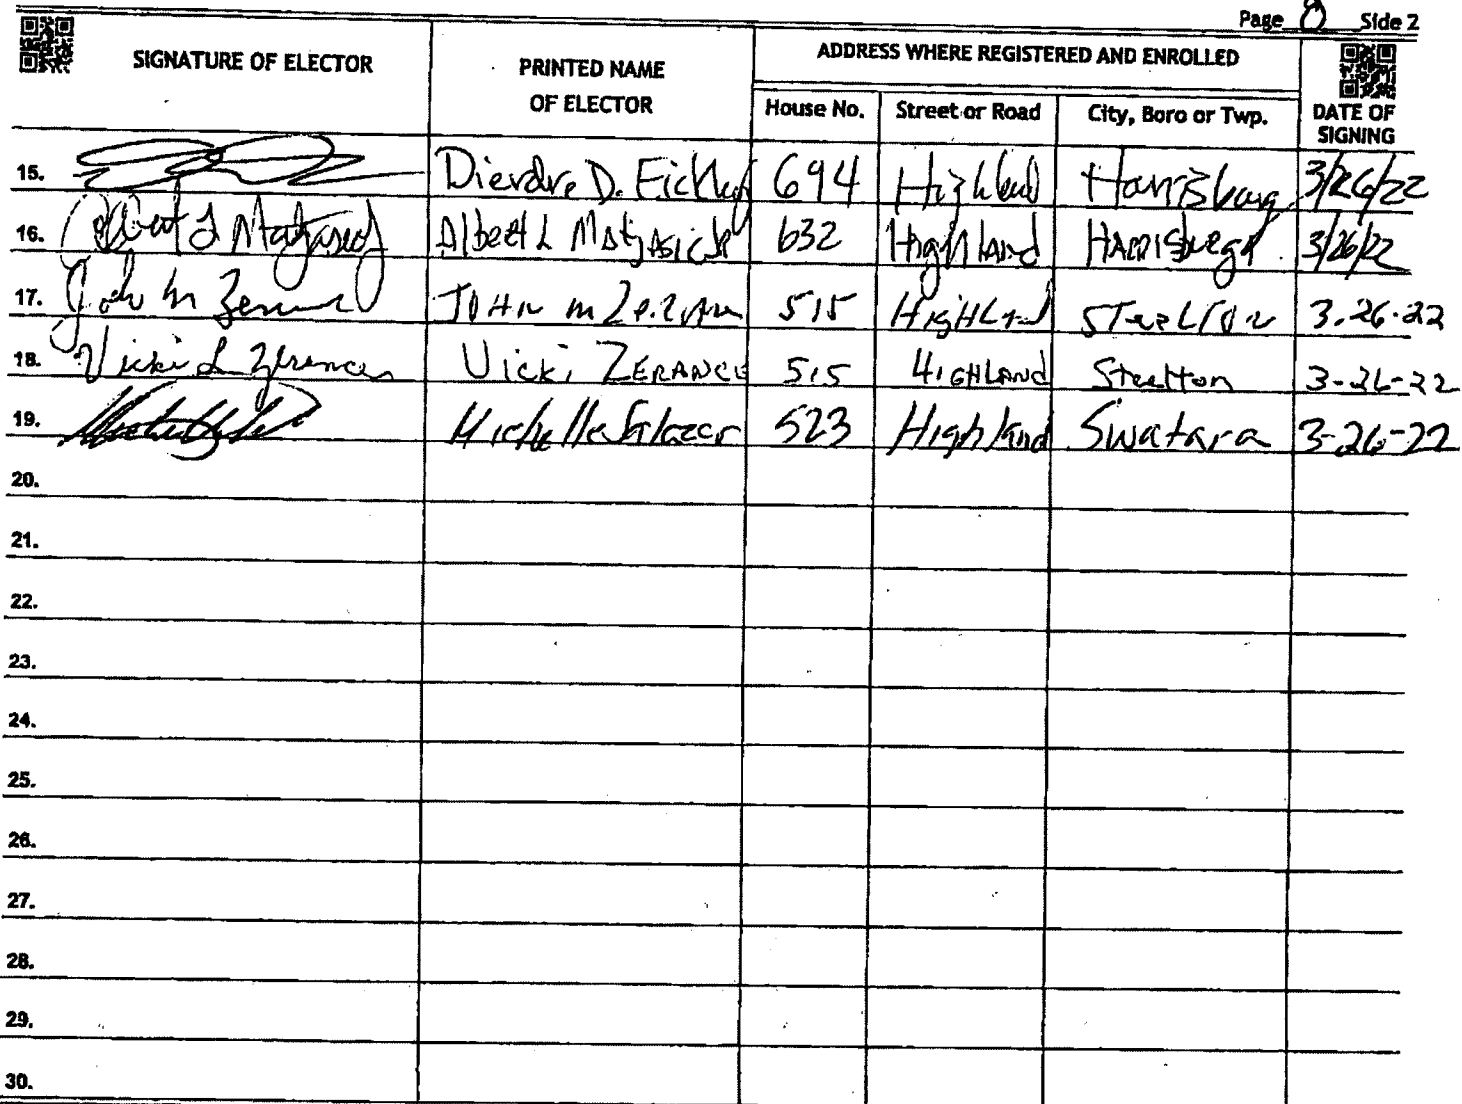 Page 8 Side 2
SIGNATURE OF ELECTOR
PRINTED NAME
OF ELECTOR
ADDRESS WHERE REGISTERED AND ENROLLED
House No. Street or Road City, Boro or Twp.
DATE OF
SIGNING
15. Dierdre D. 694 Highland Harrisburg 3/26/22
16. Albert L Matjasic Albert L Matjasic JR 632 Highland Harrisburg 3/26/22
17. John M John M 515 HigHLand STeeLTON 3.26.22
18. Vicki L Zerance Vicki ZERANCE 515 HIGHLAND Steelton 3-26-22
19. Michelle Salazar 523 Highland Swatara 3-26-22
20.
21.
22.
23.
24.
25.
26.
27.
28.
29.
30.